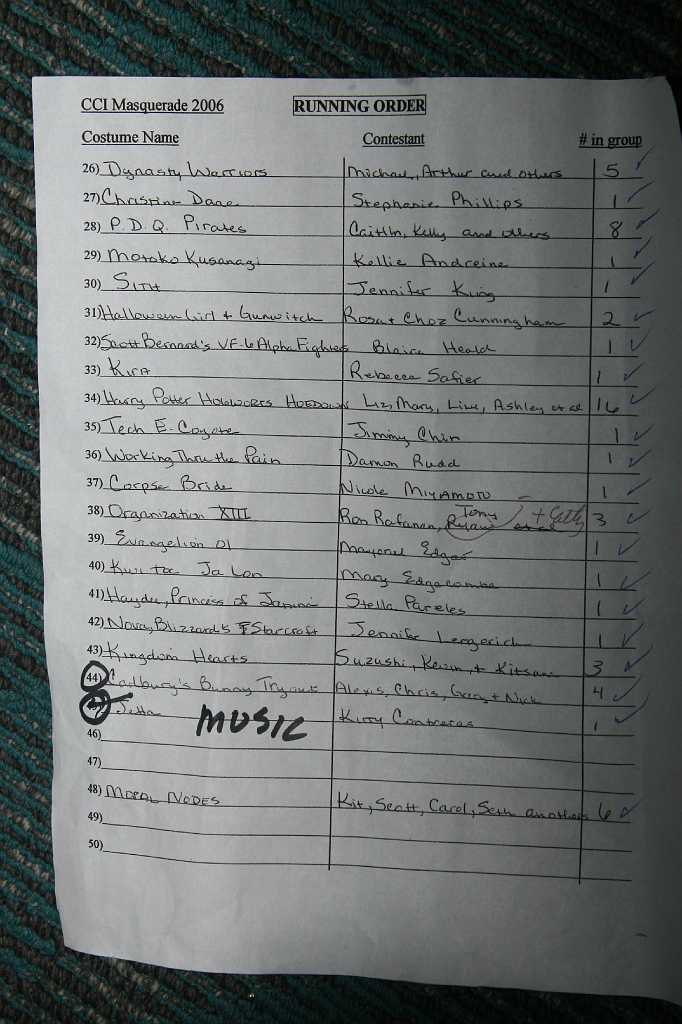 CCI Masquerade 2006 RUNNING ORDER
Costume Name Contestant # in group
26) Dynasty Warriors Michael, Arthur and others 5
27) Christine Daae Stephanie Phillips 1
28) P.D.Q. Pirates Caitlin, Kelly and others 8
29) Motoko Kusanagi Kellie Andreine 1
30) Sith Jennifer King 1
31) Halloween Girl + Gunwitch Rosa + Choz Cunningham 2
32) Scott Bernard's VF-6 Alpha Fighters Blaire Heald 1
33) Kira Rebecca Safier 1
34) Harry Potter Hogworts Hoedown Liz, Mary, Line, Ashley et al 16
35) Tech E. Coyote Jimmy Chin 1
36) Working Thru the Pain Damon Rudd 1
37) Corpse Bride Nicole Miyamoto 1
38) Organization XIII Ron Rafanan, Tony 3
39) Evangelion 01 Edgar 1
40) Mary Edgecombe 1
41) Haydee, Princess of Stella Pareles 1
42) Nova, Blizzard's Starcraft Jennifer 1
43) Kingdom Hearts Suzushi, Kevin, + 3
44) Cadbury's Bunny Tryouts Alexis, Chris, Greg + Nick 4
45) Kitty Contreras 1
MUSIC
46)
47)
48) Moral Nodes Kit, Scott, Carol, Seth 6
49)
50)